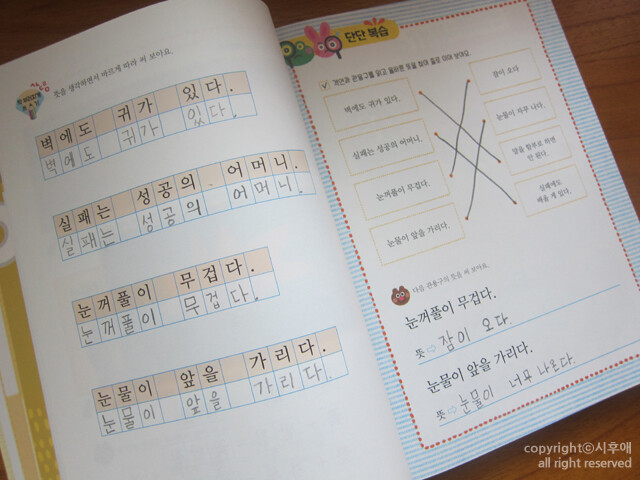 뜻을 생각하면서 바르게 따라 써 보아요.
벽에도 귀가 있다.
벽에도 귀가 있다.
실패는 성공의 어머니.
실패는 성공의 어머니.
눈꺼풀이 무겁다.
눈꺼풀이 무겁다.
눈물이 앞을 가리다.
눈물이 앞을 가리다.
단단 복습
격언과 관용구를 읽고 올바른 뜻을 찾아 줄로 이어 보아요.
벽에도 귀가 있다.
실패는 성공의 어머니.
눈꺼풀이 무겁다.
눈물이 앞을 가리다.
잠이 오다.
눈물이 자꾸 나다.
말을 함부로 하면
안 된다.
실패에도
배울 게 있다.
다음 관용구의 뜻을 써 보아요.
눈꺼풀이 무겁다.
뜻 ⇨ 잠이 오다.
눈물이 앞을 가리다.
뜻 ⇨ 눈물이 너무 나온다.
copyrightⓒ시후애
all right reserved